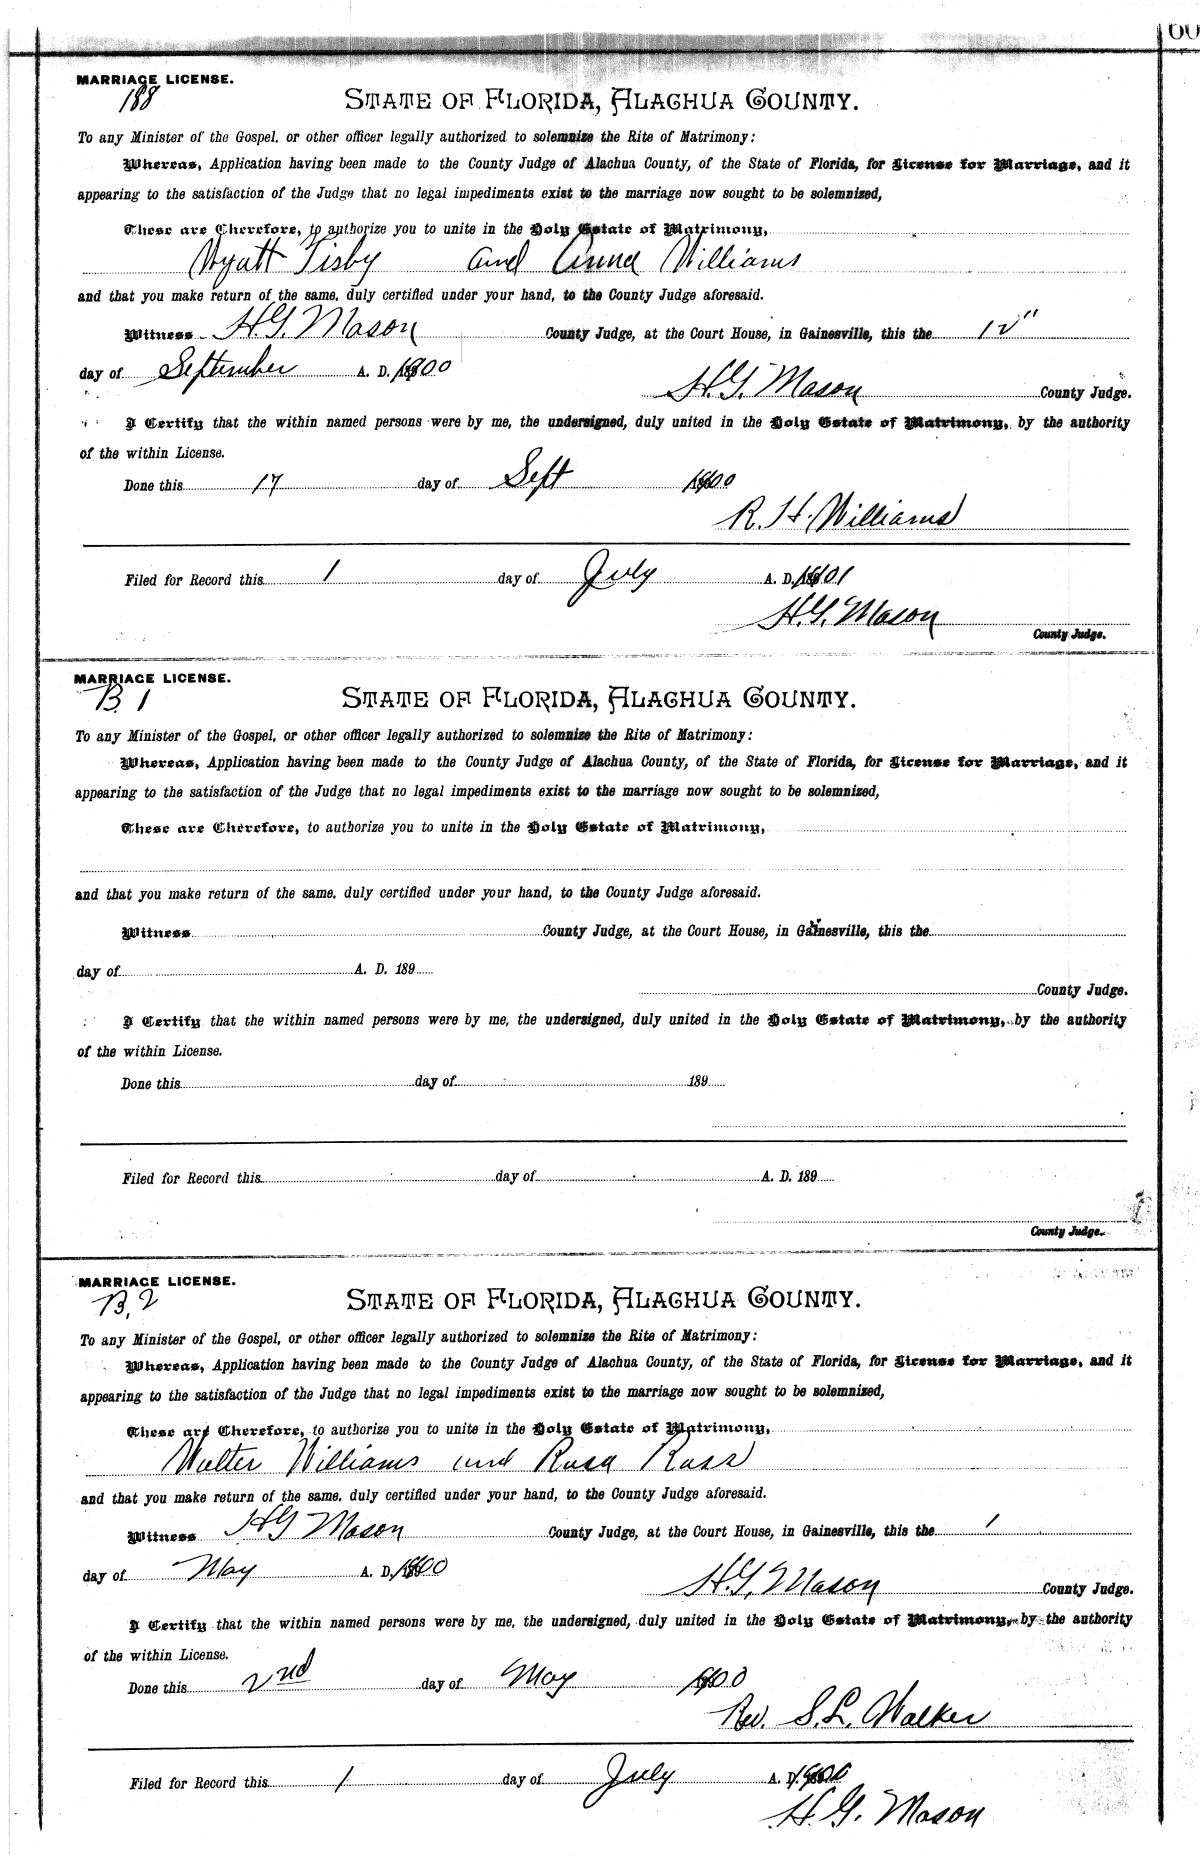 60
MARRIAGE LICENSE.
188
STATE OF FLORIDA, ALACHUA COUNTY.
To any Minister of the Gospel, or other officer legally authorized to solemnize the Rite of Matrimony:
Whereas, Application having been made to the County Judge of Alachua County, of the State of Florida, for License for Marriage, and it
appearing to the satisfaction of the Judge that no legal impediments exist to the marriage now sought to be solemnized,
These are Therefore, to authorize you to unite in the Holy Estate of Matrimony,
Wyatt Tisby and Anna Williams
and that you make return of the same, duly certified under your hand, to the County Judge aforesaid.
Witness H.G. Mason County Judge, at the Court House, in Gainesville, this the 12"
day of September A. D. 1900
H.G. Mason County Judge.
I Certify that the within named persons were by me, the undersigned, duly united in the Holy Estate of Matrimony, by the authority
of the within License.
Done this 17 day of Sept 1900
R. H. Williams
Filed for Record this 1 day of July A. D. 1901
H.G. Mason
County Judge.
MARRIAGE LICENSE.
B. 1
STATE OF FLORIDA, ALACHUA COUNTY.
To any Minister of the Gospel, or other officer legally authorized to solemnize the Rite of Matrimony:
Whereas, Application having been made to the County Judge of Alachua County, of the State of Florida, for License for Marriage, and it
appearing to the satisfaction of the Judge that no legal impediments exist to the marriage now sought to be solemnized,
These are Therefore, to authorize you to unite in the Holy Estate of Matrimony,
and that you make return of the same, duly certified under your hand, to the County Judge aforesaid.
Witness County Judge, at the Court House, in Gainesville, this the
day of A. D. 189
County Judge.
I Certify that the within named persons were by me, the undersigned, duly united in the Holy Estate of Matrimony, by the authority
of the within License.
Done this day of 189
Filed for Record this day of A. D. 189
County Judge.
MARRIAGE LICENSE.
B. 2
STATE OF FLORIDA, ALACHUA COUNTY.
To any Minister of the Gospel, or other officer legally authorized to solemnize the Rite of Matrimony:
Whereas, Application having been made to the County Judge of Alachua County, of the State of Florida, for License for Marriage, and it
appearing to the satisfaction of the Judge that no legal impediments exist to the marriage now sought to be solemnized,
These are Therefore, to authorize you to unite in the Holy Estate of Matrimony,
Walter Williams and Rosa Ross
and that you make return of the same, duly certified under your hand, to the County Judge aforesaid.
Witness H G Mason County Judge, at the Court House, in Gainesville, this the 1
day of May A. D. 1900
H.G. Mason County Judge.
I Certify that the within named persons were by me, the undersigned, duly united in the Holy Estate of Matrimony, by the authority
of the within License.
Done this 2nd day of May 1900
Rev. S. L. Walker
Filed for Record this 1 day of July A. D. 1900
H. G. Mason